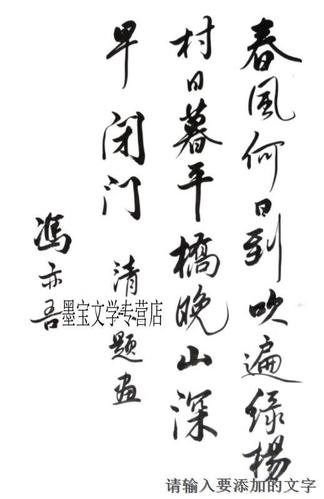 春風何日到吹遍绿楊
村日暮平橋晚山深
早闭门 清题画
馮亦吾
墨宝文学专营店
请输入要添加的文字